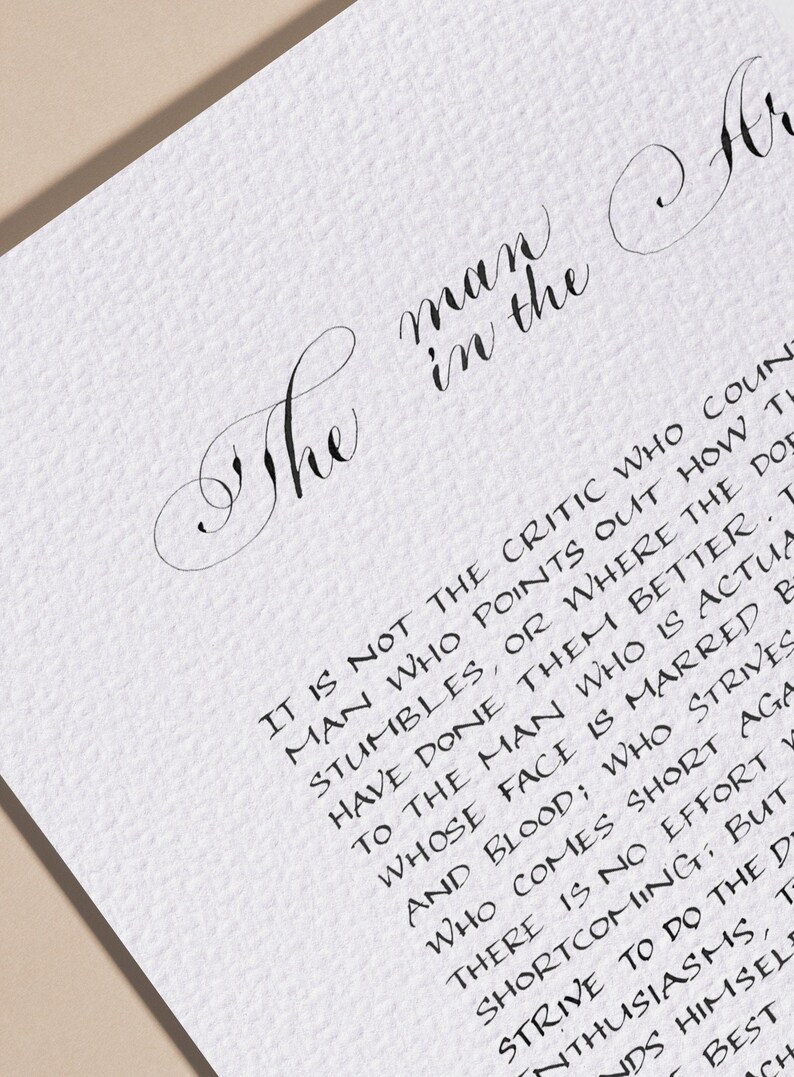 The man in the Ar
IT IS NOT THE CRITIC WHO COUN
MAN WHO POINTS OUT HOW TH
STUMBLES, OR WHERE THE DOE
HAVE DONE THEM BETTER. T
TO THE MAN WHO IS ACTUA
WHOSE FACE IS MARRED B
AND BLOOD; WHO STRIVES
WHO COMES SHORT AGA
THERE IS NO EFFORT W
SHORTCOMING; BUT
STRIVE TO DO THE D
ENTHUSIASMS, T
NDS HIMSEL
BEST
ACH